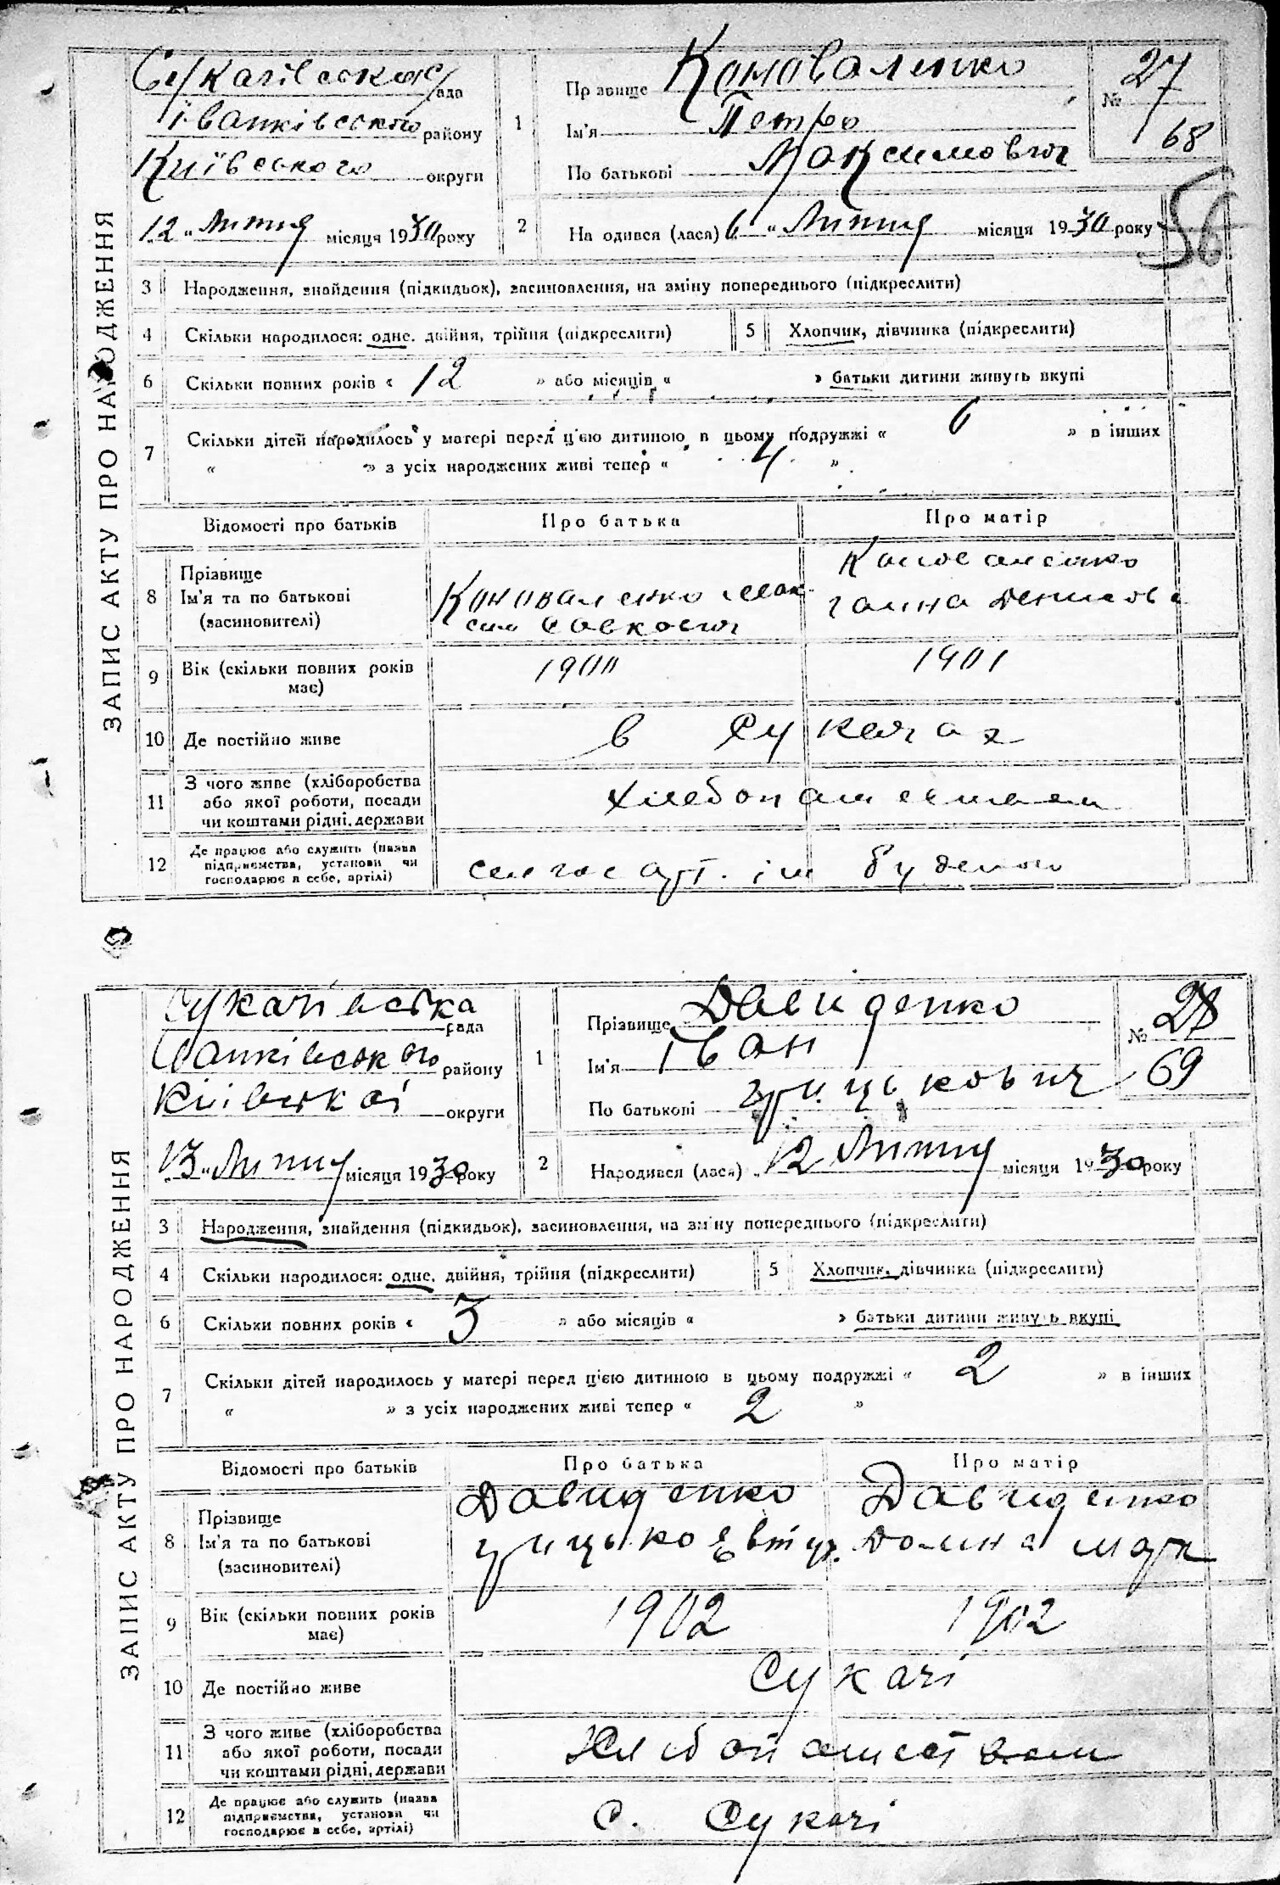 Сукачівської рада
Іванківського району
Київського округи
12 " Липня місяця 1930 року
1
Прізвище Коноваленко
Ім'я Петро
По батькові Максимович
№ 27
68
56
2
На одився (лася) 6 " Липня місяця 1930 року
ЗАПИС АКТУ ПРО НАРОДЖЕННЯ
3 Народження, знайдення (підкидьок), засиновлення, на зміну попереднього (підкреслити)
4 Скільки народилося: одне, двійня, трійня (підкреслити) 5 Хлопчик, дівчинка (підкреслити)
6 Скільки повних років « 12 » або місяців « » батьки дитини живуть вкупі
7 Скільки дітей народилось у матері перед цією дитиною в цьому подружжі « 6 » в інших
« » з усіх народжених живі тепер « 4 »
Відомості про батьків Про батька Про матір
8 Прізвище Ім'я та по батькові (засиновителі)
Коноваленко Мак-
сим Савкович
Коноваленко
Ганна Денисов
9 Вік (скільки повних років має) 1900 1901
10 Де постійно живе в Сукачах
11 З чого живе (хліборобства
або якої роботи, посади
чи коштами рідні, держави
12 Де працює або служить (назва
підприємства, установи чи
господарює в себе, артілі)
сельгос арт. ім Буденого
Сукачівська рада
Іванківського району
Київської округи
13 " Липня місяця 1930 року
1
Прізвище Давиденко
Ім'я Іван
По батькові Грицькович
№ 28
69
2
Народився (лася) 12 Липня місяця 1930 року
ЗАПИС АКТУ ПРО НАРОДЖЕННЯ
3 Народження, знайдення (підкидьок), засиновлення, на зміну попереднього (підкреслити)
4 Скільки народилося: одне, двійня, трійня (підкреслити) 5 Хлопчик, дівчинка (підкреслити)
6 Скільки повних років « 3 » або місяців « » батьки дитини живуть вкупі
7 Скільки дітей народилось у матері перед цією дитиною в цьому подружжі « 2 » в інших
« » з усіх народжених живі тепер « 2 »
Відомості про батьків Про батька Про матір
8 Прізвище Ім'я та по батькові (засиновителі)
Давиденко
Грицько Явтух.
Давиденко
Домна Марк
9 Вік (скільки повних років має) 1902 1902
10 Де постійно живе Сукачі
11 З чого живе (хліборобства
або якої роботи, посади
чи коштами рідні, держави
12 Де працює або служить (назва
підприємства, установи чи
господарює в себе, артілі)
с. Сукачі